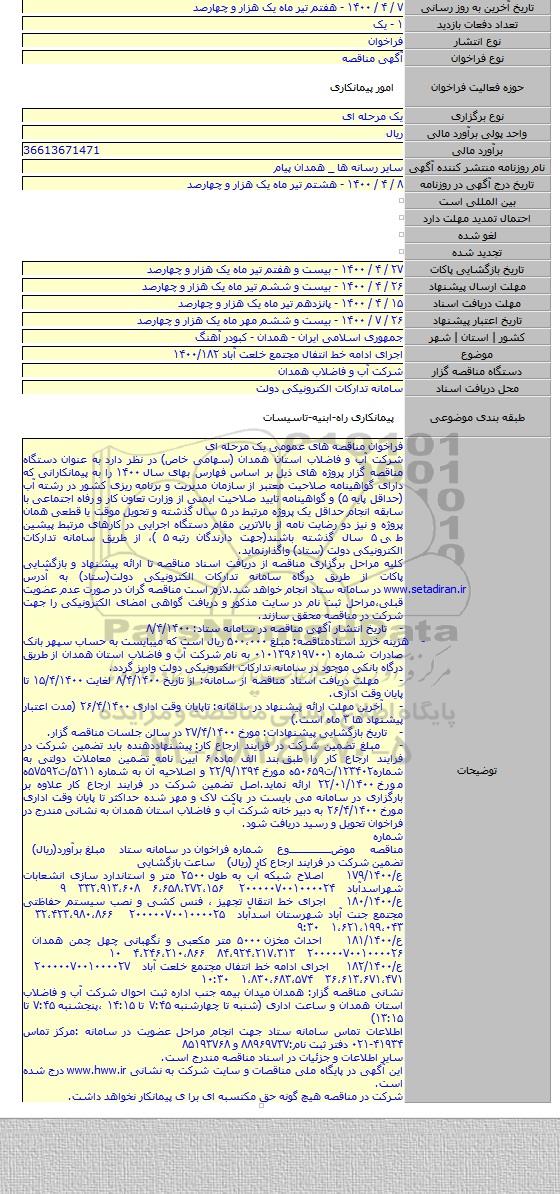 تاریخ آخرین به روز رسانی ۷ / ۴ / ۱۴۰۰ - هفتم تیر ماه یک هزار و چهارصد
تعداد دفعات بازدید ۱ - یک
نوع انتشار فراخوان
نوع فراخوان آگهی مناقصه
حوزه فعالیت فراخوان امور پیمانکاری
نوع برگزاری یک مرحله ای
واحد پولی برآورد مالی ریال
برآورد مالی 36613671471
نام روزنامه منتشر کننده آگهی سایر رسانه ها _ همدان پیام
تاریخ درج آگهی در روزنامه ۸ / ۴ / ۱۴۰۰ - هشتم تیر ماه یک هزار و چهارصد
بین المللی است
احتمال تمدید مهلت دارد
لغو شده
تجدید شده
تاریخ بازگشایی پاکات ۲۷ / ۴ / ۱۴۰۰ - بیست و هفتم تیر ماه یک هزار و چهارصد
مهلت ارسال پیشنهاد ۲۶ / ۴ / ۱۴۰۰ - بیست و ششم تیر ماه یک هزار و چهارصد
مهلت دریافت اسناد ۱۵ / ۴ / ۱۴۰۰ - پانزدهم تیر ماه یک هزار و چهارصد
تاریخ اعتبار پیشنهاد ۲۶ / ۷ / ۱۴۰۰ - بیست و ششم مهر ماه یک هزار و چهارصد
کشور | استان | شهر جمهوری اسلامی ایران - همدان - کبودر آهنگ
موضوع اجرای ادامه خط انتقال مجتمع خلعت آباد ۱۴۰۰/۱۸۲
دستگاه مناقصه گزار شرکت آب و فاضلاب همدان
محل دریافت اسناد سامانه تدارکات الکترونیکی دولت
طبقه بندی موضوعی پیمانکاری راه-ابنیه-تاسیسات
توضیحات
فراخوان مناقصه های عمومی یک مرحله ای
شرکت آب و فاضلاب استان همدان (سهامی خاص) در نظر دارد به عنوان دستگاه
مناقصه گزار پروژه های ذیل بر اساس فهارس بهای سال ۱۴۰۰ را به پیمانکارانی که
دارای گواهینامه صلاحیت معتبر از سازمان مدیریت و برنامه ریزی کشور در رشته آب
(حداقل پایه ۵) و گواهینامه تایید صلاحیت ایمنی از وزارت تعاون کار و رفاه اجتماعی با
سابقه انجام حداقل یک پروژه مرتبط در ۵ سال گذشته و تحویل موقت یا قطعی همان
پروژه و نیز دو رضایت نامه از بالاترین مقام دستگاه اجرایی در کارهای مرتبط پیشین
ط ی ۵ سال گذشته باشند(جهت دارندگان رتبه ۵ )، از طریق سامانه تدارکات
الکترونیکی دولت (ستاد) واگذارنماید.
کلیه مراحل برگزاری مناقصه از دریافت اسناد مناقصه تا ارائه پیشنهاد و بازگشایی
پاکات از طریق درگاه سامانه تدارکات الکترونیکی دولت(ستاد) به آدرس
www.setadiran.ir در سامانه ستاد انجام خواهد شد.لازم است مناقصه گران در صورت عدم عضویت
قبلی،مراحل ثبت نام در سایت مذکور و دریافت گواهی امضای الکترونیکی را جهت
شرکت در مناقصه محقق سازند.
- تاریخ انتشار آگهی مناقصه در سامانه ستاد: ۸/۴/۱۴۰۰
- هزینه خرید اسنادمناقصه: مبلغ ۵۰۰،۰۰۰ ریال است که میبایست به حساب سپهر بانک
صادرات شماره ۰۱۰۱۳۹۶۱۹۷۰۰۱ به نام شرکت آب و فاضلاب استان همدان از طریق
درگاه بانکی موجود در سامانه تدارکات الکترونیکی دولت واریز گردد.
- مهلت دریافت اسناد مناقصه از سامانه: از تاریخ ۸/۴/۱۴۰۰ لغایت ۱۵/۴/۱۴۰۰ تا
پایان وقت اداری.
- آخرین مهلت ارائه پیشنهاد در سامانه: تاپایان وقت اداری ۲۶/۴/۱۴۰۰ (مدت اعتبار
پیشنهاد ها ۳ ماه است.)
- تاریخ بازگشایی پیشنهادات: مورخ ۲۷/۴/۱۴۰۰ در سالن جلسات مناقصه گزار.
- مبلغ تضمین شرکت در فرایند ارجاع کار: پیشنهاددهنده باید تضمین شرکت در
فرایند ارجاع کار را طبق بند الف ماده ۶ آیین نامه تضمین معاملات دولتی به
شماره۱۲۳۴۰۲/ت۵۰۶۵۹ه مورخ ۲۲/۹/۱۳۹۴ و اصلاحیه آن به شماره ۵۲۱۱/ت۵۷۵۹۲ه
مورخ ۲۲/۰۱/۱۴۰۰ ارائه نماید.اصل تضمین شرکت در فرایند ارجاع کار علاوه بر
بارگزاری در سامانه می بایست در پاکت لاک و مهر شده حداکثر تا پایان وقت اداری
مورخ ۲۶/۴/۱۴۰۰ به دبیر خانه شرکت آب و فاضلاب استان همدان به نشانی مندرج در
فراخوان تحویل و رسید دریافت شود.
شماره
مناقصه موضـــــــــوع شماره فراخوان در سامانه ستاد مبلغ برآورد(ریال)
تضمین شرکت در فرایند ارجاع کار (ریال) ساعت بازگشایی
ع/۱۷۹/۱۴۰۰ اصلاح شبکه آب به طول ۲۵۰۰ متر و استاندارد سازی انشعابات
شهراسدآباد ۲۰۰۰۰۰۷۰۰۱۰۰۰۰۲۴ ۶،۶۵۸،۲۷۲،۱۵۶ ۳۳۲،۹۱۳،۶۰۸ ۹
ع/۱۸۰/۱۴۰۰ اجرای خط انتقال تجهیز ، فنس کشی و نصب سیستم حفاظتی
مجتمع جنت آباد شهرستان اسدآباد ۲۰۰۰۰۰۷۰۰۱۰۰۰۰۲۵ ۳۲،۴۲۳،۹۸۰،۸۶۶
۱،۶۲۱،۱۹۹،۰۴۳ ۹:۳۰
ع/۱۸۱/۱۴۰۰ احداث مخزن ۵۰۰۰ متر مکعبی و نگهبانی چهل چمن همدان
۲۰۰۰۰۰۷۰۰۱۰۰۰۰۲۶ ۸۴،۹۲۴،۲۱۷،۳۱۳ ۴،۲۴۶،۲۱۰،۸۶۶ ۱۰
ع/۱۸۲/۱۴۰۰ اجرای ادامه خط انتقال مجتمع خلعت آباد ۲۰۰۰۰۰۷۰۰۱۰۰۰۰۲۷
۳۶،۶۱۳،۶۷۱،۴۷۱ ۱،۸۳۰،۶۸۳،۵۷۴ ۱۰:۳۰
نشانی مناقصه گزار: همدان میدان بیمه جنب اداره ثبت احوال شرکت آب و فاضلاب
استان همدان و ساعت اداری (شنبه تا چهارشنبه ۷:۴۵ تا ۱۴:۱۵ ،پنجشنبه ۷:۴۵ تا
۱۳:۱۵)
اطلاعات تماس سامانه ستاد جهت انجام مراحل عضویت در سامانه :مرکز تماس
۰۲۱-۴۱۹۳۴ دفتر ثبت نام:۸۸۹۶۹۷۳۷ و ۸۵۱۹۳۷۶۸
سایر اطلاعات و جزئیات در اسناد مناقصه مندرج است.
این آگهی در پایگاه ملی مناقصات و سایت شرکت به نشانی www.hww.ir درج شده
است.
شرکت در مناقصه هیچ گونه حق مکتسبه ای برا ی پیمانکار نخواهد داشت.